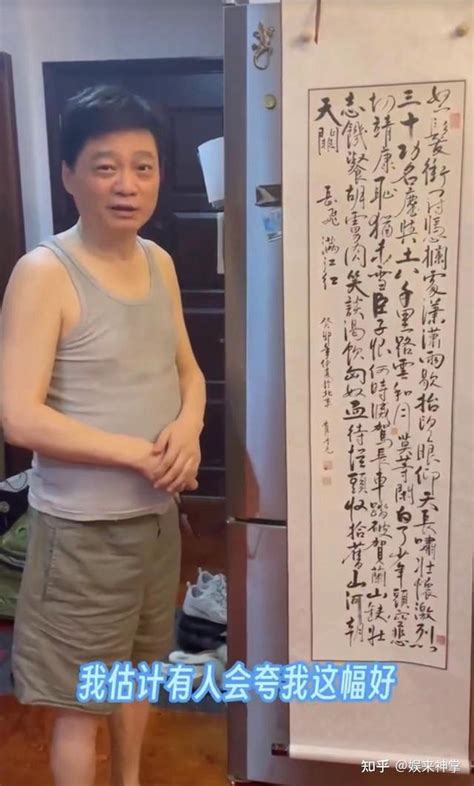 怒髮衝冠憑欄處瀟瀟雨歇抬望眼仰天長嘯壯懷激烈
三十功名塵與土八千里路雲和月莫等閒白了少年頭空悲
切靖康恥猶未雪臣子恨何時滅駕長車踏破賀蘭山缺壯
志饑餐胡虜肉笑談渴飲匈奴血待從頭收拾舊山河朝
天闕 岳飛 滿江红
癸卯年 於北京
我估计有人会夸我这幅好
知乎 @娱来神掌